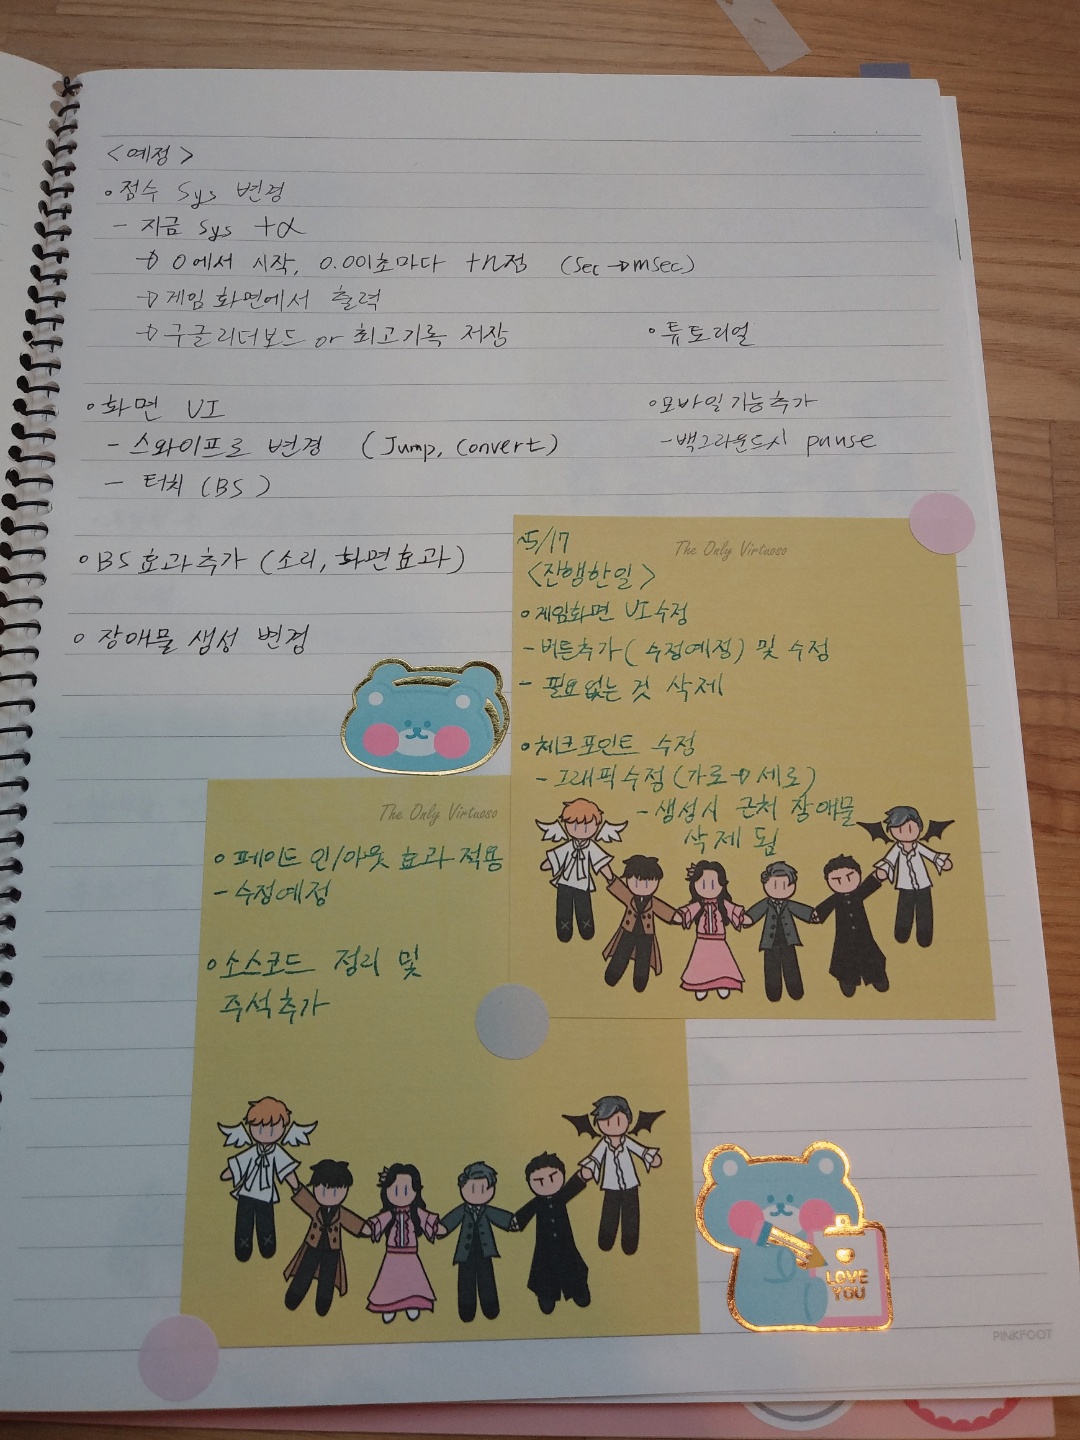 <예정>
◦점수 Sys 변경
- 지금 Sys +α
→ 0에서 시작, 0.001초마다 +n점 (Sec → msec)
→ 게임 화면에서 출력
→ 구글리더보드 or 최고기록 저장
◦튜토리얼
◦화면 UI
- 스와이프로 변경 (Jump, Convert)
- 터치 (BS)
◦모바일기능추가
-백그라운드시 pause
◦BS효과추가 (소리, 화면효과)
◦장애물 생성 변경
The Only Virtuoso
~5/17
<진행한일>
◦게임화면 UI수정
-버튼추가(수정예정) 및 수정
- 필요없는 것 삭제
◦체크포인트 수정
-그래픽수정(가로→세로)
-생성시 근처 장애물
삭제 됨
The Only Virtuoso
◦페이드 인/아웃 효과 적용
-수정예정
◦소스코드 정리 및
주석추가
LOVE
YOU
PINKFOOT